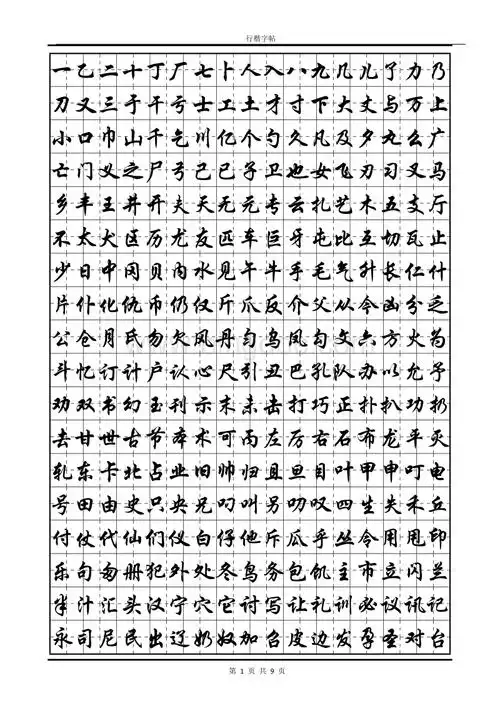 行楷字帖
一乙二十丁厂七卜人入八九几儿了力乃
刀又三于干亏士工土才寸下大丈与万上
小口巾山千乞川亿个勺久凡及夕丸么广
亡门义之尸弓己已子卫也女飞刃习叉马
乡丰王井开夫天无元专云扎艺木五支厅
不太犬区历尤友匹车巨牙屯比互切瓦止
少日中冈贝内水见午牛手毛气升长仁什
片仆化仇币仍仅斤爪反介父从今凶分乏
公仓月氏勿欠风丹匀乌凤勾文六方火为
斗忆订计户认心尺引丑巴孔队办以允予
劝双书幻玉刊示末未击打巧正扑扒功扔
去甘世古节本术可丙左厉右石布龙平灭
轧东卡北占业旧帅归且旦目叶甲申叮电
号田由史只央兄叼叫另叨叹四生失禾丘
付仗代仙们仪白仔他斥瓜乎丛令用甩印
乐句匆册犯外处冬鸟务包饥主市立闪兰
半汁汇头汉宁穴它讨写让礼训必议讯记
永司尼民出辽奶奴加召皮边发孕圣对台
第 1 页 共 9 页